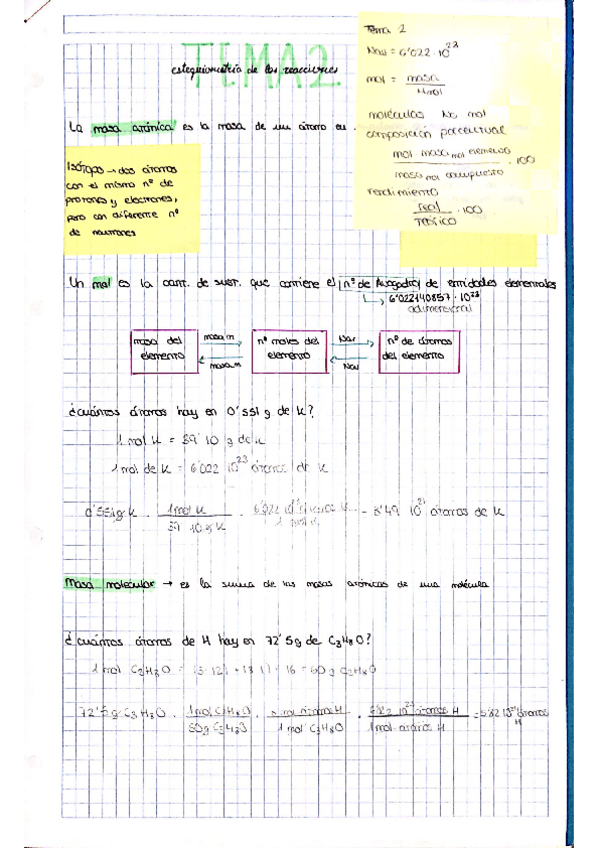 TEMA 2
estequiometría de las reacciones
Tema 2
Nav = 6'022 · 10²³
mol = masa / Mmol
moléculas Na mol
composición porcentual
mol · masa mol elemento / masa mol compuesto · 100
rendimiento
real / teórico · 100
La masa atómica es la masa de un átomo en
Isótopos → dos átomos
con el mismo nº de
protones y electrones,
pero con diferente nº
de neutrones
Un mol es la cant. de sust. que contiene el nº de Avogadro de entidades elementales
↳ 6'022140857 · 10²³
adimensional
masa del elemento
masa m
masa m
nº moles del elemento
Nav
Nav
nº de átomos del elemento
¿cuántos átomos hay en 0'551 g de K?
1 mol K = 39'10 g de K
1 mol de K = 6'022 10²³ átomos de K
0'551 g K · 1 mol K / 39'10 g K · 6'022 10²³ átomos K / 1 mol K = 8'49 10²¹ átomos de K
Masa molecular → es la suma de las masas atómicas de una molécula
¿cuántos átomos de H hay en 72'5 g de C₃H₈O?
1 mol C₃H₈O = (3·12) + (8·1) + 16 = 60 g C₃H₈O
72'5 g C₃H₈O · 1 mol C₃H₈O / 60 g C₃H₈O · mol átomos H / 1 mol C₃H₈O · 6'022 10²³ átomos H / 1 mol átomos H = 5'82 10²⁴ átomos H